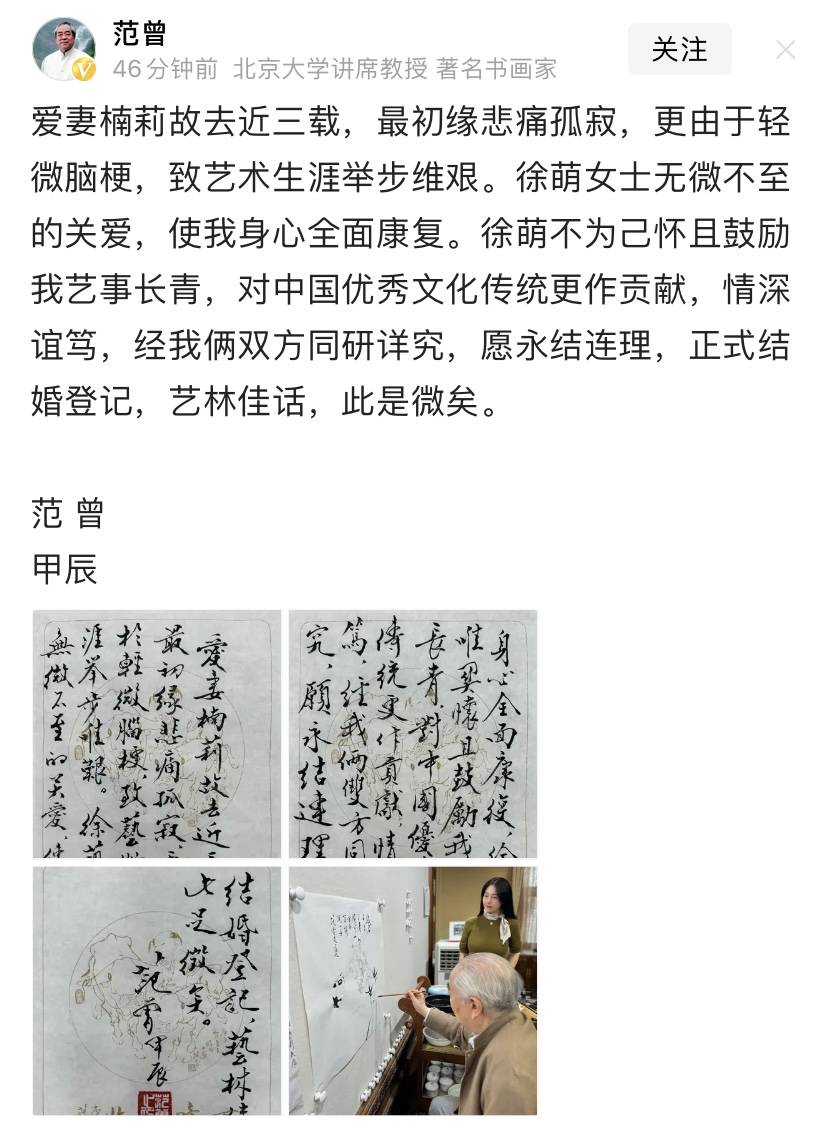 范曾
46分钟前 北京大学讲席教授 著名书画家
关注
爱妻楠莉故去近三载，最初缘悲痛孤寂，更由于轻
微脑梗，致艺术生涯举步维艰。徐萌女士无微不至
的关爱，使我身心全面康复。徐萌不为己怀且鼓励
我艺事长青，对中国优秀文化传统更作贡献，情深
谊笃，经我俩双方同研详究，愿永结连理，正式结
婚登记，艺林佳话，此是微矣。
范 曾
甲辰
愛妻楠莉故去近
最初缘悲痛孤寂，
於輕微腦梗，致藝
涯举步唯艱。徐萌
無微不至的关愛，
身心全面康復，徐
唯契懷且鼓勵我
長青，對中國優
傳統更作貢獻，情
篤，经我俩雙方同
究，願永结連理
结婚登記，藝林
此足徵矣。
范曾甲辰